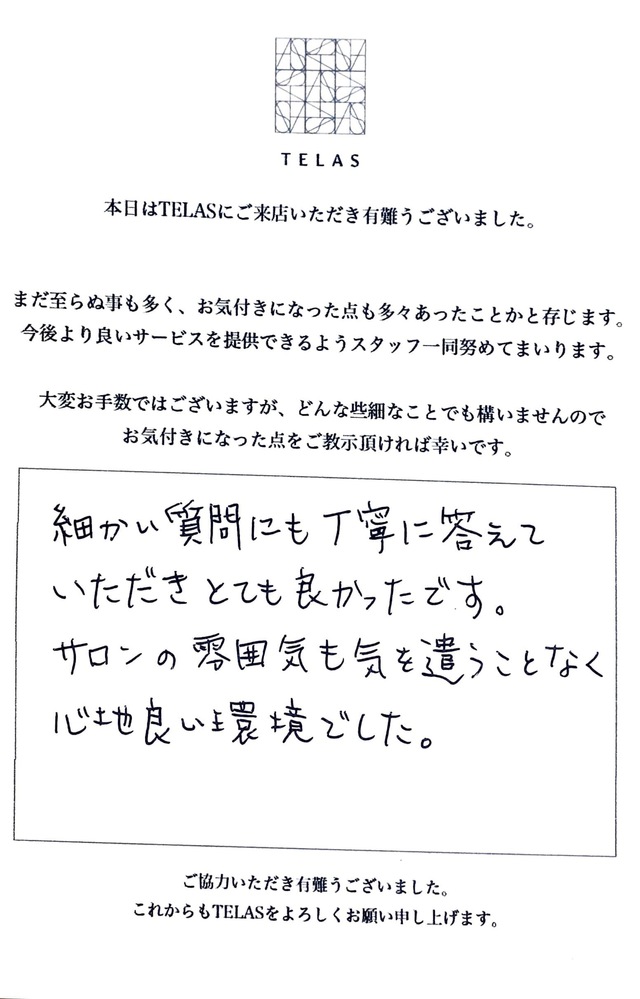 TELAS
本日はTELASにご来店いただき有難うございました。
まだ至らぬ事も多く、お気付きになった点も多々あったことかと存じます。
今後より良いサービスを提供できるようスタッフ一同努めてまいります。
大変お手数ではございますが、どんな些細なことでも構いませんので
お気付きになった点をご教示頂ければ幸いです。
細かい質問にも丁寧に答えて
いただきとても良かったです。
サロンの雰囲気も気を遣うことなく
心地良い環境でした。
ご協力いただき有難うございました。
これからもTELASをよろしくお願い申し上げます。